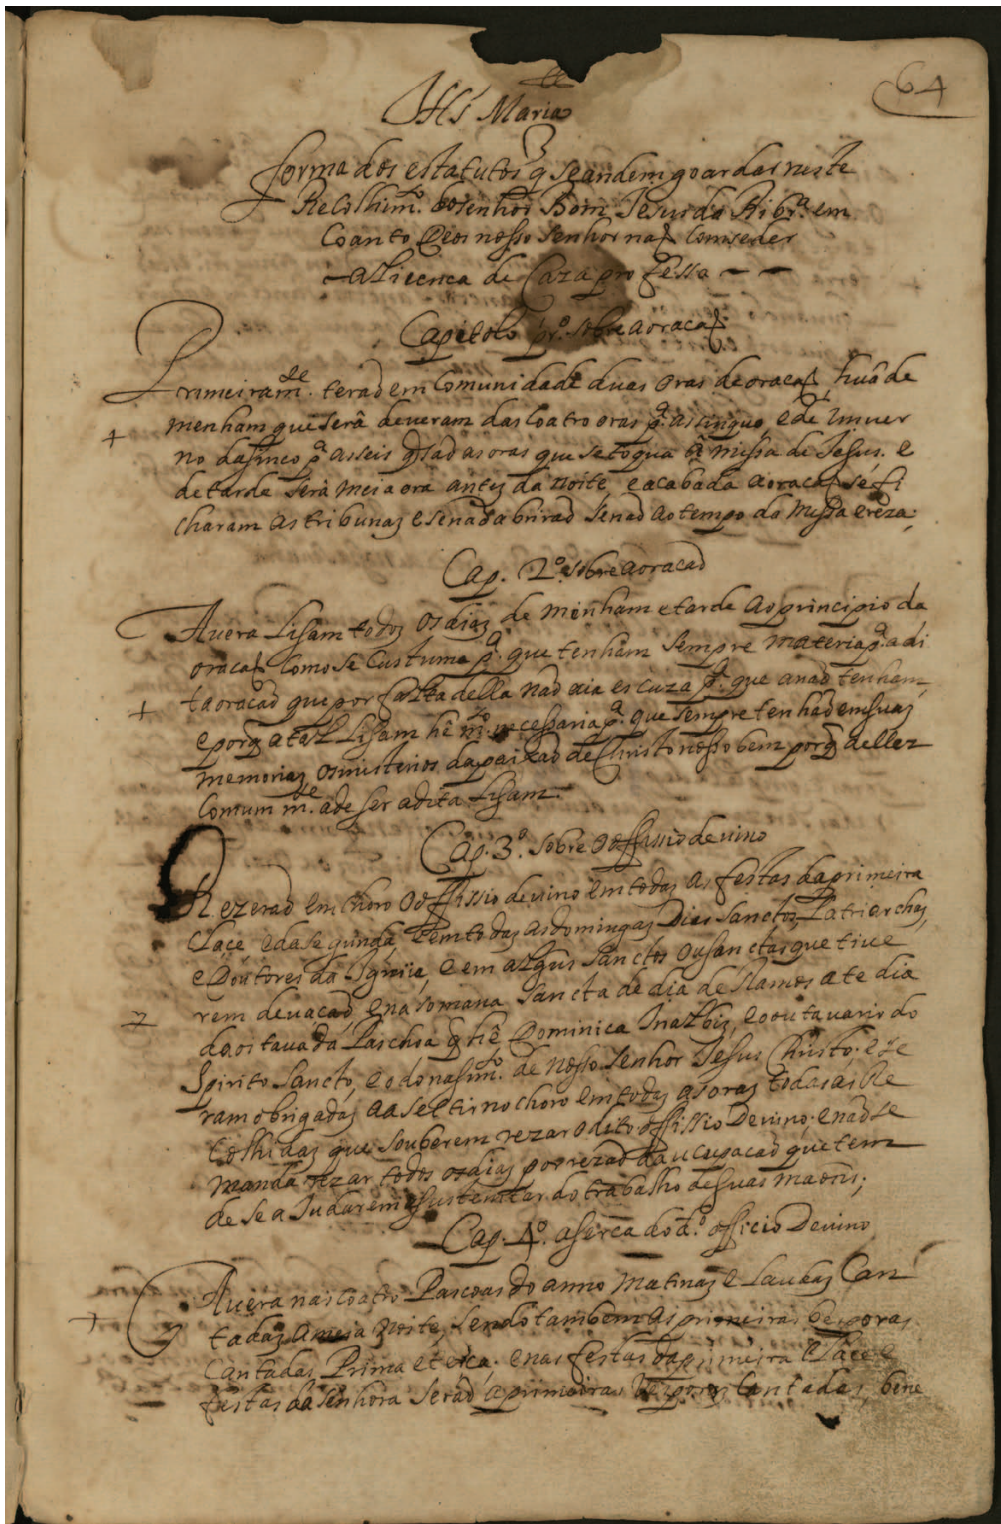 64
IHS Maria
forma dos estatutos q̃ se andem goardar neste
Recolhim.to do senhor Bom Jesus da Ribr.a em
Coanto Deos nosso senhor naõ Comseder
a Lisenca de Caza professa
Capitolo pr.o sobre a oracaõ
Primeiram.te teraõ em Comunidade duas oras de oracaõ, huã de
menham que serâ de veram das Coatro oras p.a as sinquo, e de Imver
no da sinco p.a as seis q̃ saõ as oras que se toqua a missa de Jesus. e
de tarde serà meia ora antes da noite, e acabada a oracaõ se fi
charam as tribunas e se naõ abriraõ senaõ ao tempo da Missa e reza;
Cap. 2.o sobre a oracaõ
Avera Lisam todos os dias de menham e tarde ao principio da
oracaõ como se Custuma p.a que tenham sempre materia p.a a di
ta oracaõ que por falta della naõ aia escuza p.a que a naõ tenham,
e porq̃ a tal Lisam hê m.to necessaria p.a que sempre tenhaõ em suas
memorias os misterios da paixaõ de Christo nosso bem porq̃ delles
Comum m.te ade ser a dita Lisam.
Cap. 3.o sobre o offissio devino
Rezeraõ em choro o offissio devino em todas as festas da primeira
Clace e da segunda, e em todas as domingas Dias Sanctos, Patriarchas,
e Doutores da Igreija, e em algũs sanctos ou sanctas que tive
rem devacaõ, e na somana sancta de dia de Ramos ate dia
do oitava da Paschoa q̃ hê Dominica In albis, e o outavario do
Spirito Sancto, e o do nasim.to de nosso Senhor Jesus Christo; e se
ram obrigadas a asestir no choro em todas as oras todas as Re
colhidas que souberem rezar o dito offissio Devino; e naõ se
manda rezar todos os dias por rezaõ da ucupacaõ que tem
de se a Judarem e sustentar do trabalho de suas maõns;
Cap. 4.o aserca do d.o officio Devino
Avera nas coatro Pascoas do anno Matinas e Laudas Can
tadas a meia noite, sendo tambem as primeiras besporas
Cantadas, Prima e terca; e nas festas da primeira Clace e
festas da Senhora seraõ a primeiras Vesporas Cantadas, bene